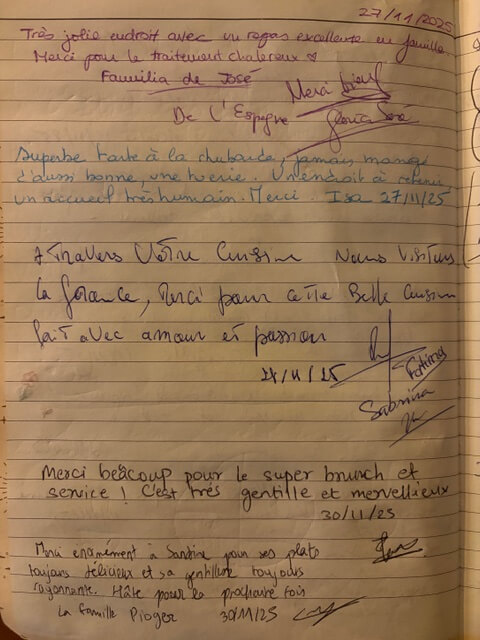 27/11/2025
Très jolie endroit avec un repas excellente en famille
Merci pour le traitement chalereux
Familia de José
Merci
De l'Espagne
Superbe tarte à la rhubarbe, jamais mangé
d'aussi bonne, une tuerie. Un endroit à retenir,
un accueil très humain. Merci. Isa 27/11/25
A travers Votre Cuisine Nous Visitons
la France, Merci pour cette Belle Cuisine
fait avec amour et passion
27/11/25
Fatima
Sabrina
Merci beacoup pour le super brunch et
service ! C'est très gentille et mervellieux
30/11/25
Merci énormément à Sandrine pour ses plats
toujours délicieux et sa gentillesse toujours
rayonnante. Hâte pour la prochaine fois
La famille Pioger 30/11/25